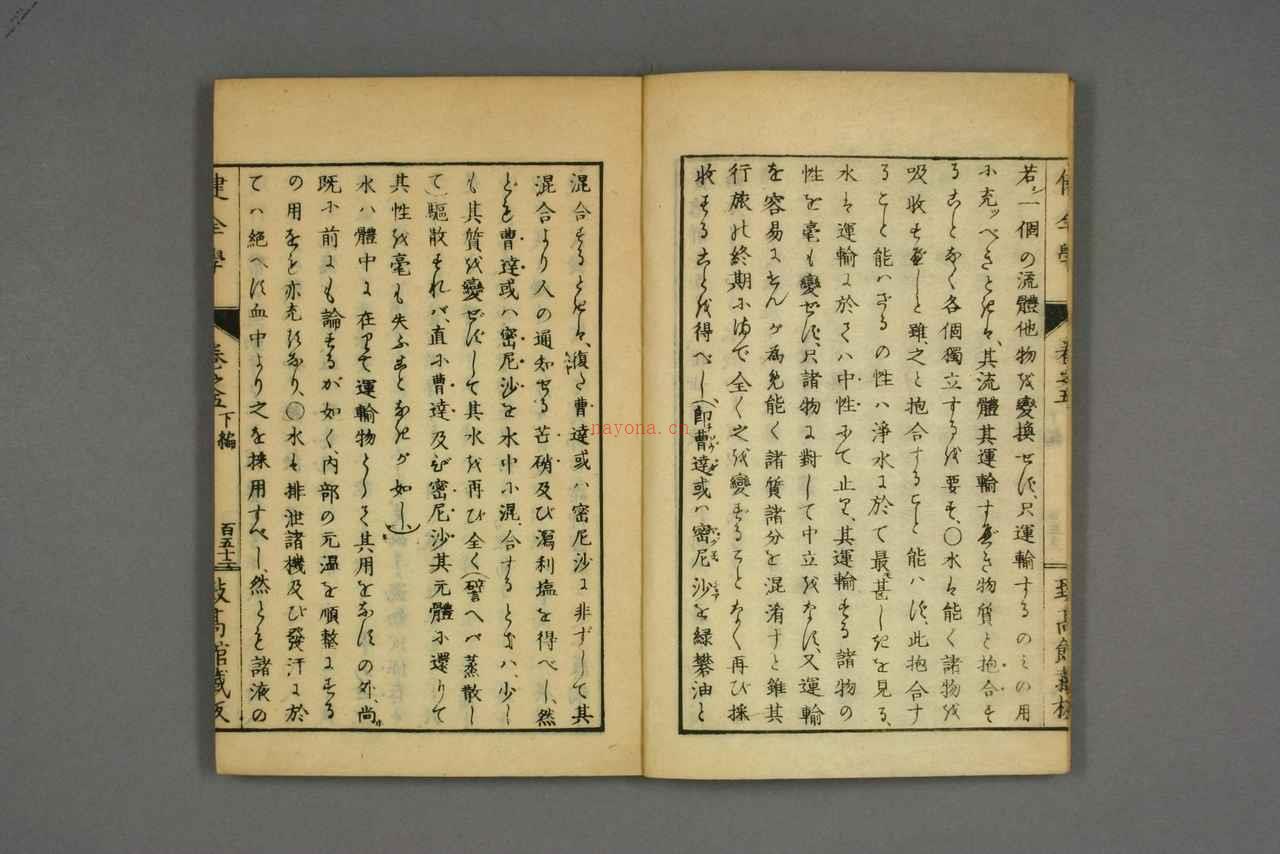 若シ一個の流體他物を變換せず、只運輸するのミの用
に充ッべきときハ、其流體其運輸すべき物質と抱合す
ることなく各個獨立するを要す、〇水ハ能く諸物を
吸收すべしと雖、之と抱合すること能ハず、此抱合す
ること能ハざるの性ハ淨水に於て最甚しきを見る、
水ハ運輸に於てハ中性にて止り、其運輸する諸物の
性を毫も變ぜず、只諸物に對して中立をなす、又運輸
を容易にせんが為め能く諸質諸分を混淆すと雖其
行旅の終期に て全く之を變ずることなく再び採
收することを得べし、(即曹達或ハ密尼沙を緑礬油と
混合するときハ、復た曹達或ハ密尼沙に非ずして其
混合より人の通知せる芒硝及び瀉利塩を得べし、然
ども曹達或ハ密尼沙を水中に混合するときハ、少し
も其質を變ぜずして其水を再び全く(譬へバ蒸散し
て)驅散すれバ、直に曹達及び密尼沙其元體に還りて
其性を毫も失ふことなきが如し)
水ハ體中に在りて運輸物として其用をなすの外、尚
既に前にも論ずるが如く、内部の元温を順整にする
の用をも亦充すなり、〇水も排泄諸機及び發汗に於
てハ絶へず血中より之を採用すべし、然ども諸液の
健全學
卷之五下編
百五十三
致高館藏版
nayona.cn